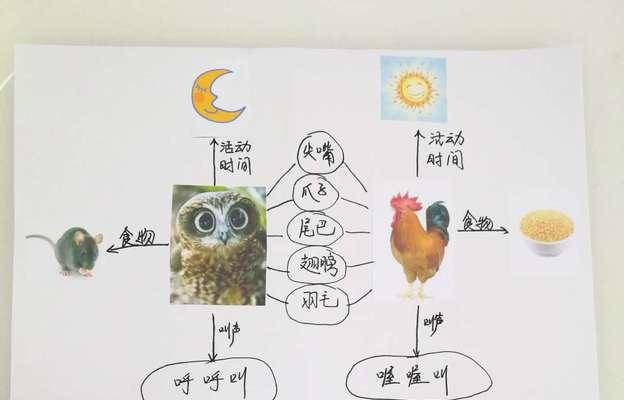 活动
时间
活动
时间
尖嘴
爪子
尾巴
翅膀
羽毛
食物
食物
叫声
叫声
呼呼叫
喔喔叫